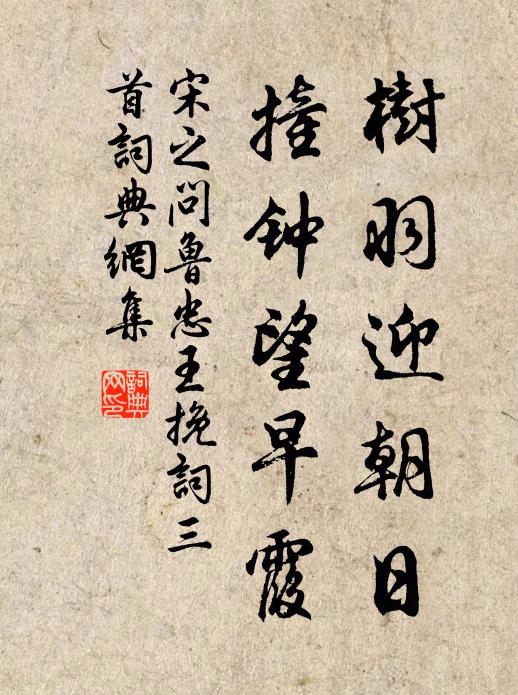 樹羽迎朝日
撞钟望早霞
宋之问魯忠王挽詞三
首詞典網集
詞典
网印